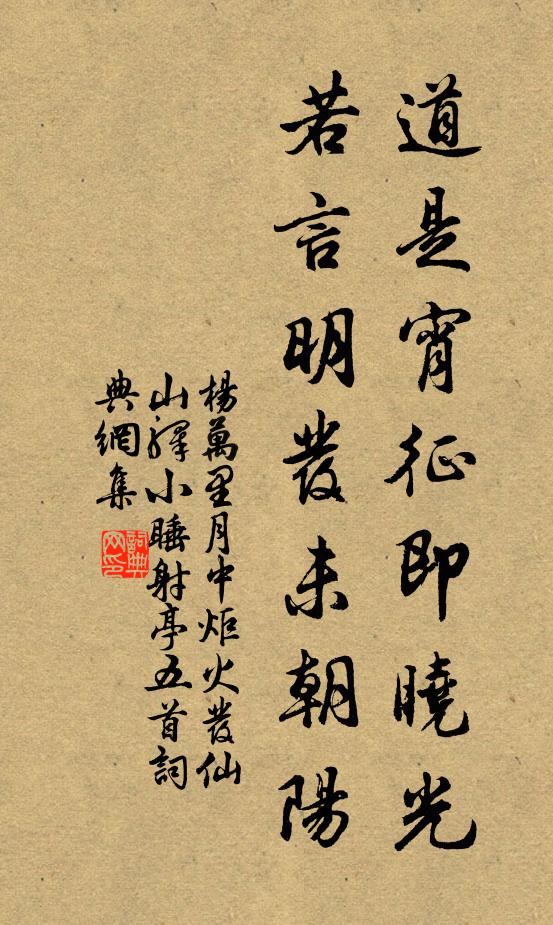 道是宵征即曉光
若言明發未朝陽
楊萬里月中炬火發仙
山驛小睡射亭五首詞
典網集
詞典網印